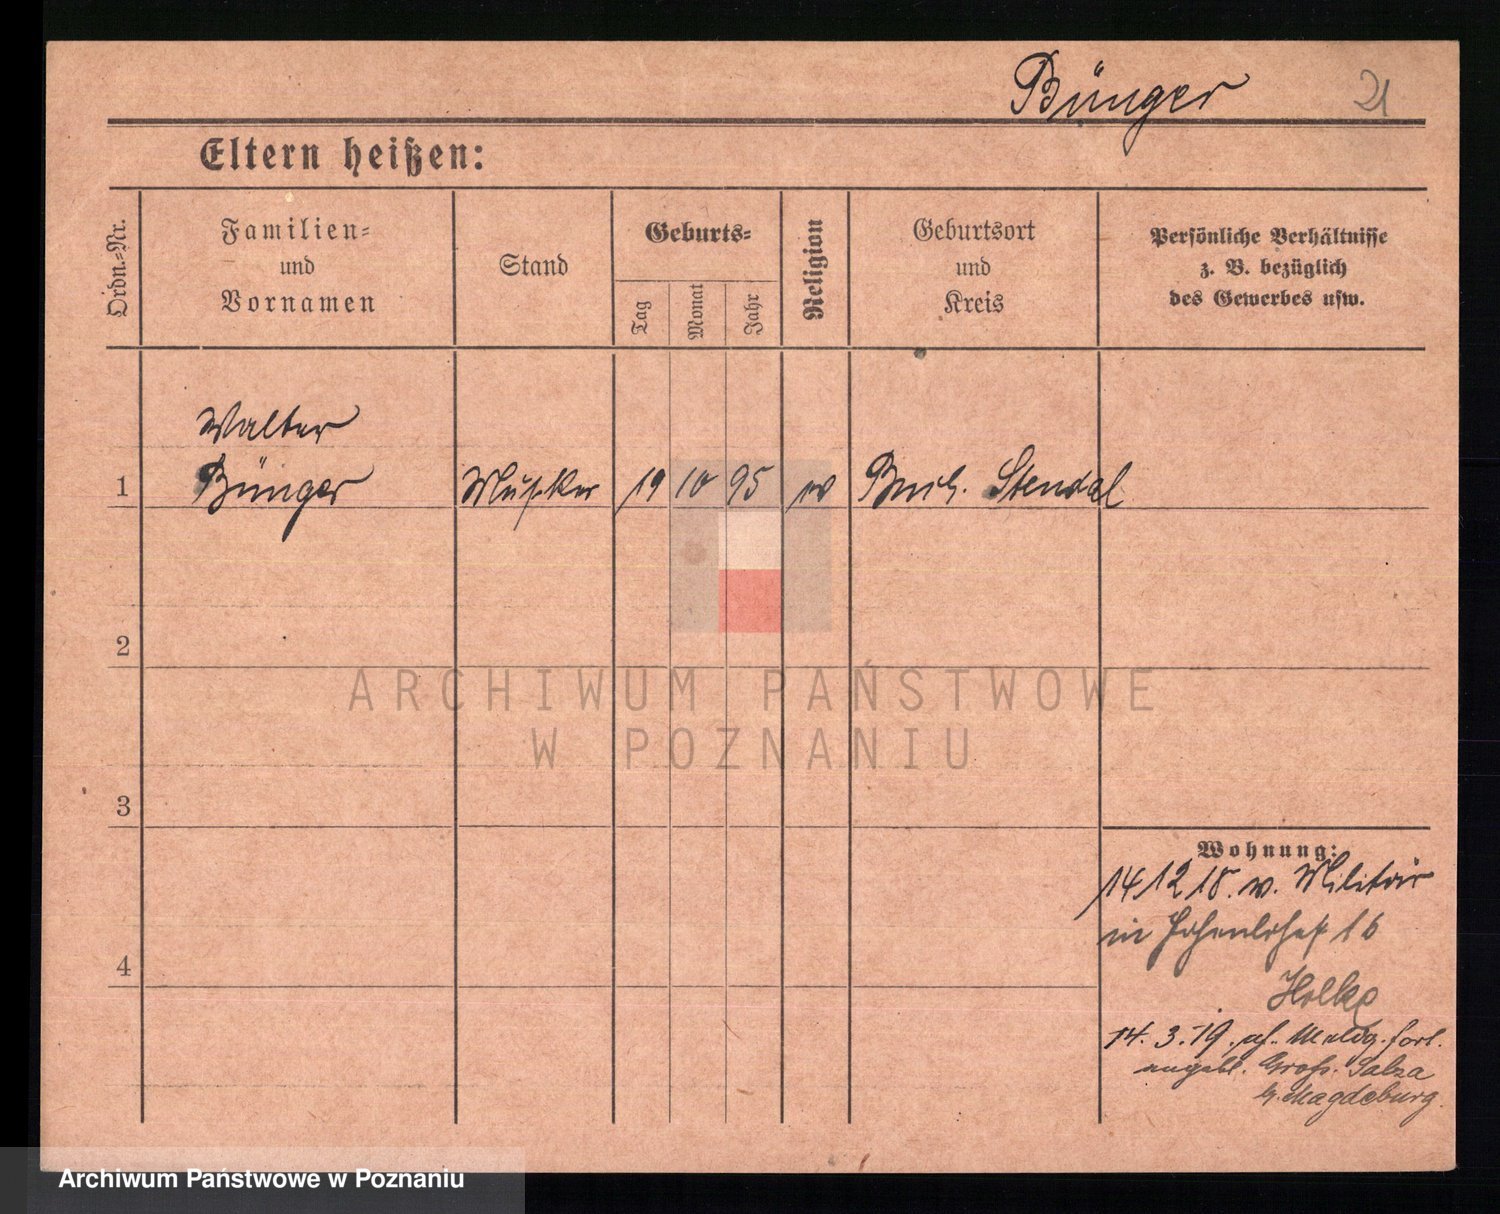 Bünger 21
Eltern heißen:
Ordn.-Nr.
Familien-
und
Vornamen
Stand
Geburts-
Tag
Monat
Jahr
Religion
Geburtsort
und
Kreis
Persönliche Verhältnisse
z. B. bezüglich
des Gewerbes usw.
Walter
1 Bünger Musker 19 10 95 ev Buch. Stendal
2
ARCHIWUM PAŃSTWOWE
W POZNANIU
3
Wohnung:
14 12 18. v. Militär
in Hohenlohestr 16
14. 3. 19. Meldg. fort.
angebl. Gross. Salza
b. Magdeburg.
4
Archiwum Państwowe w Poznaniu